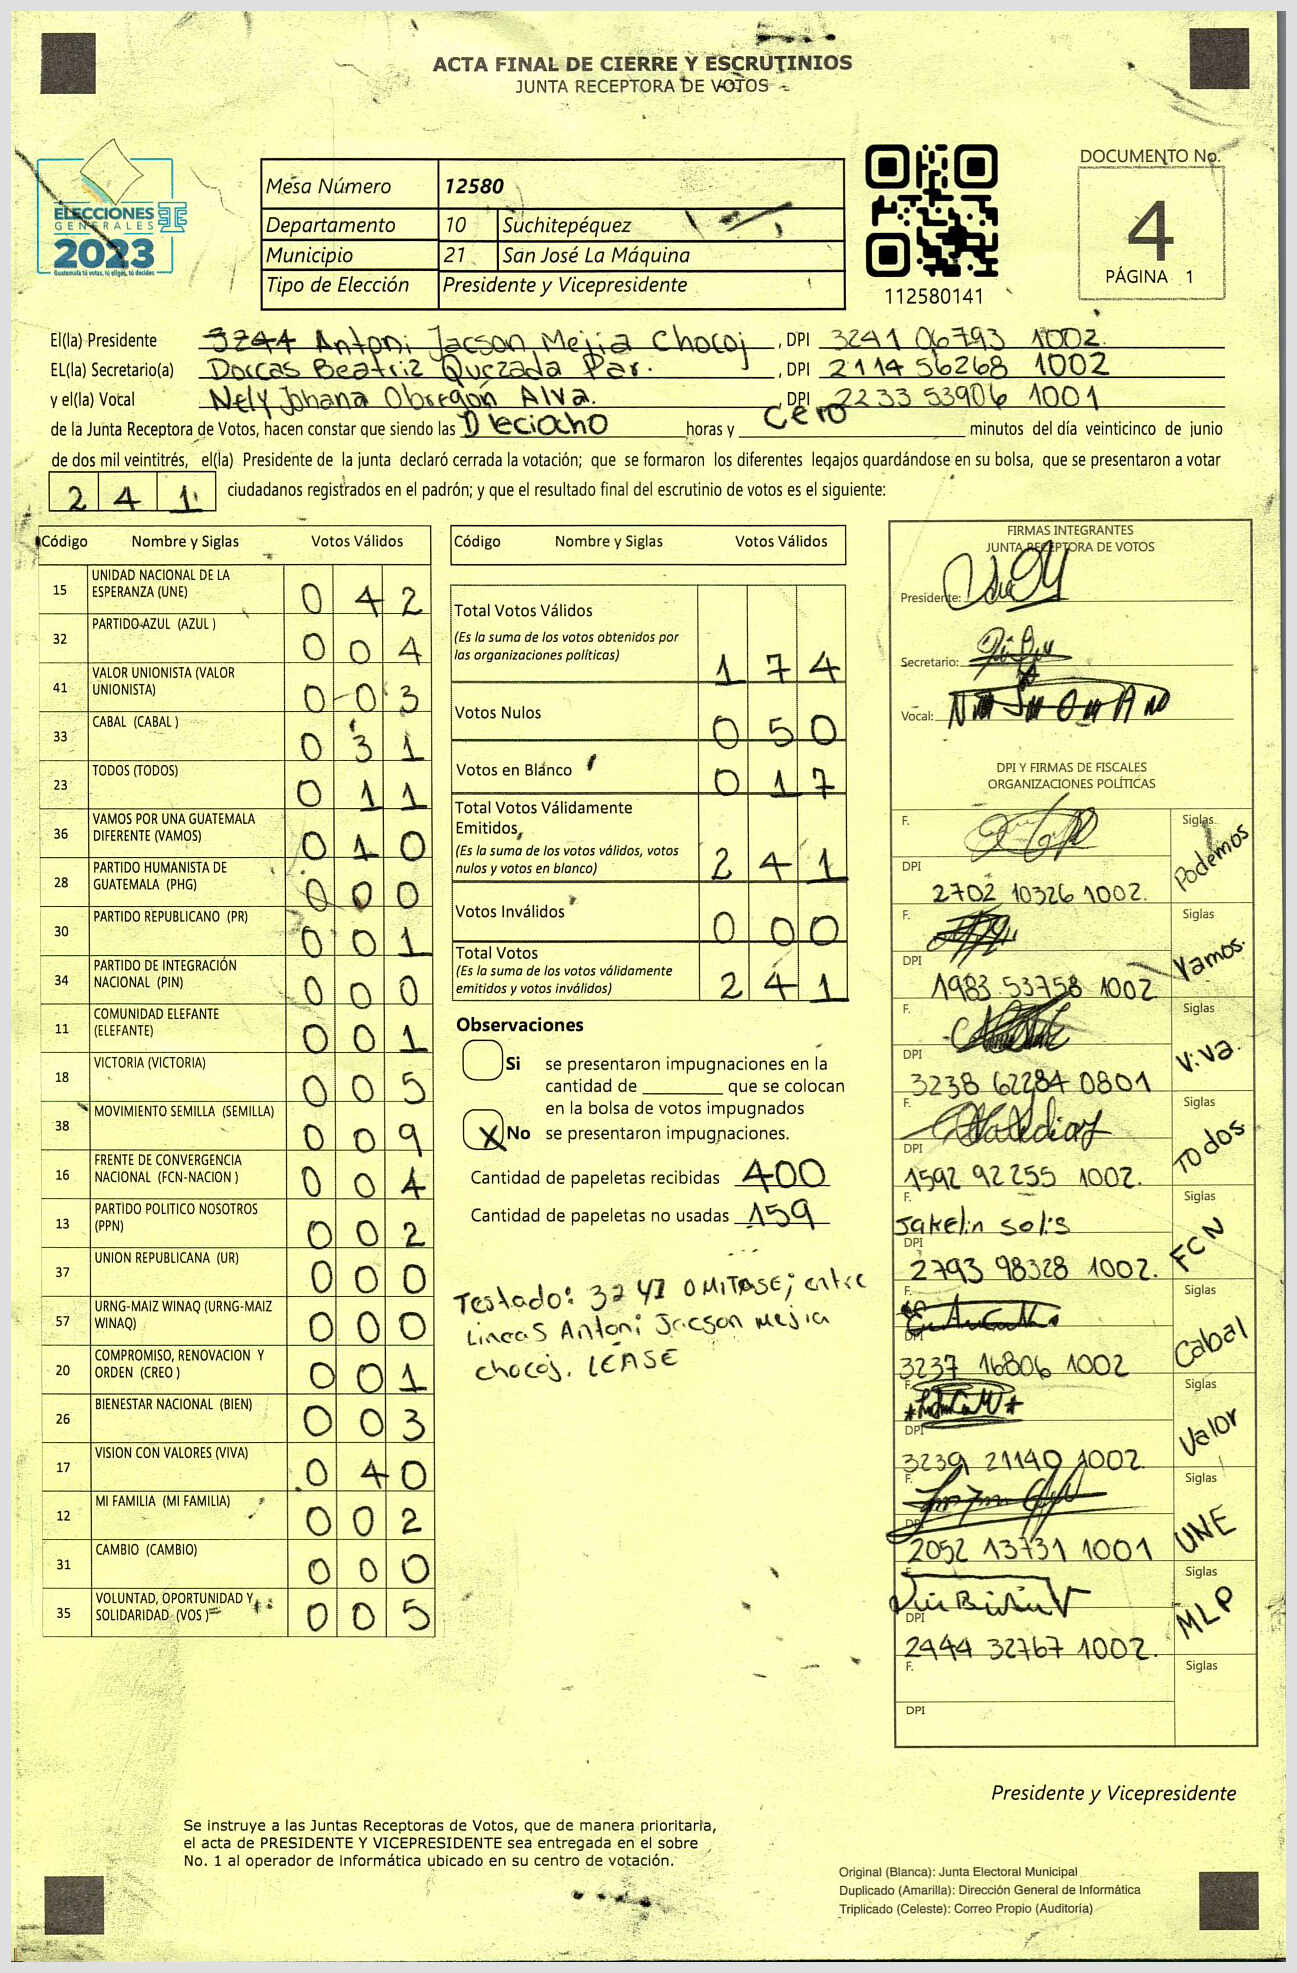 ACTA FINAL DE CIERRE Y ESCRUTINIOS
JUNTA RECEPTORA DE VOTOS
ELECCIONES
GENERALES
2023
Guatemala tú votas, tú eliges, tú decides
Mesa Número 12580
Departamento 10 Suchitepéquez
Municipio 21 San José La Máquina
Tipo de Elección Presidente y Vicepresidente
112580141
DOCUMENTO No.
4
PÁGINA 1
El(la) Presidente 3244 Antoni Jacson Mejia Chocoj, DPI 3241 06793 1002.
EL(la) Secretario(a) Dorcas Beatriz Quezada Par., DPI 2114 56268 1002
y el(la) Vocal Nely Johana Obregón Alva., DPI 2233 53906 1001
de la Junta Receptora de Votos, hacen constar que siendo las Dieciocho horas y cero minutos del día veinticinco de junio
de dos mil veintitrés, el(la) Presidente de la junta declaró cerrada la votación; que se formaron los diferentes legajos guardándose en su bolsa, que se presentaron a votar
2 4 1 ciudadanos registrados en el padrón; y que el resultado final del escrutinio de votos es el siguiente:
Código Nombre y Siglas Votos Válidos
15 UNIDAD NACIONAL DE LA ESPERANZA (UNE) 0 4 2
32 PARTIDO AZUL (AZUL ) 0 0 4
41 VALOR UNIONISTA (VALOR UNIONISTA) 0 0 3
33 CABAL (CABAL ) 0 3 1
23 TODOS (TODOS) 0 1 1
36 VAMOS POR UNA GUATEMALA DIFERENTE (VAMOS) 0 1 0
28 PARTIDO HUMANISTA DE GUATEMALA (PHG) 0 0 0
30 PARTIDO REPUBLICANO (PR) 0 0 1
34 PARTIDO DE INTEGRACIÓN NACIONAL (PIN) 0 0 0
11 COMUNIDAD ELEFANTE (ELEFANTE) 0 0 1
18 VICTORIA (VICTORIA) 0 0 5
38 MOVIMIENTO SEMILLA (SEMILLA) 0 0 9
16 FRENTE DE CONVERGENCIA NACIONAL (FCN-NACION ) 0 0 4
13 PARTIDO POLITICO NOSOTROS (PPN) 0 0 2
37 UNION REPUBLICANA (UR) 0 0 0
57 URNG-MAIZ WINAQ (URNG-MAIZ WINAQ) 0 0 0
20 COMPROMISO, RENOVACION Y ORDEN (CREO ) 0 0 1
26 BIENESTAR NACIONAL (BIEN) 0 0 3
17 VISION CON VALORES (VIVA) 0 4 0
12 MI FAMILIA (MI FAMILIA) 0 0 2
31 CAMBIO (CAMBIO) 0 0 0
35 VOLUNTAD, OPORTUNIDAD Y SOLIDARIDAD (VOS ) 0 0 5
Código Nombre y Siglas Votos Válidos
Total Votos Válidos
(Es la suma de los votos obtenidos por
las organizaciones políticas) 1 7 4
Votos Nulos 0 5 0
Votos en Blanco 0 1 7
Total Votos Válidamente
Emitidos
(Es la suma de los votos válidos, votos
nulos y votos en blanco) 2 4 1
Votos Inválidos 0 0 0
Total Votos
(Es la suma de los votos válidamente
emitidos y votos inválidos) 2 4 1
Observaciones
Si se presentaron impugnaciones en la
cantidad de ________ que se colocan
en la bolsa de votos impugnados
X No se presentaron impugnaciones.
Cantidad de papeletas recibidas 400
Cantidad de papeletas no usadas 159
Testado: 3241 OMITASE; entre
Lineas Antoni Jacson Mejia
chocoj. LEASE
FIRMAS INTEGRANTES
JUNTA RECEPTORA DE VOTOS
Presidente:
Secretario:
Vocal:
DPI Y FIRMAS DE FISCALES
ORGANIZACIONES POLÍTICAS
F. Siglas Podemos
DPI 2702 10326 1002.
F. Siglas Vamos.
DPI 1983 53758 1002
F. Siglas Viva.
DPI 3238 62284 0801
F. Siglas Todos.
DPI 1592 92255 1002.
F. Jakelin Solis Siglas FCN
DPI 2793 98328 1002.
F. Siglas Cabal
DPI 3237 16806 1002
F. Siglas Valor
DPI 3239 21140 1002
F. Siglas UNE
DPI 2052 13731 1001
F. Siglas MLP
DPI 2444 32767 1002.
F. Siglas
DPI
Presidente y Vicepresidente
Se instruye a las Juntas Receptoras de Votos, que de manera prioritaria,
el acta de PRESIDENTE Y VICEPRESIDENTE sea entregada en el sobre
No. 1 al operador de informática ubicado en su centro de votación.
Original (Blanca): Junta Electoral Municipal
Duplicado (Amarilla): Dirección General de Informática
Triplicado (Celeste): Correo Propio (Auditoría)